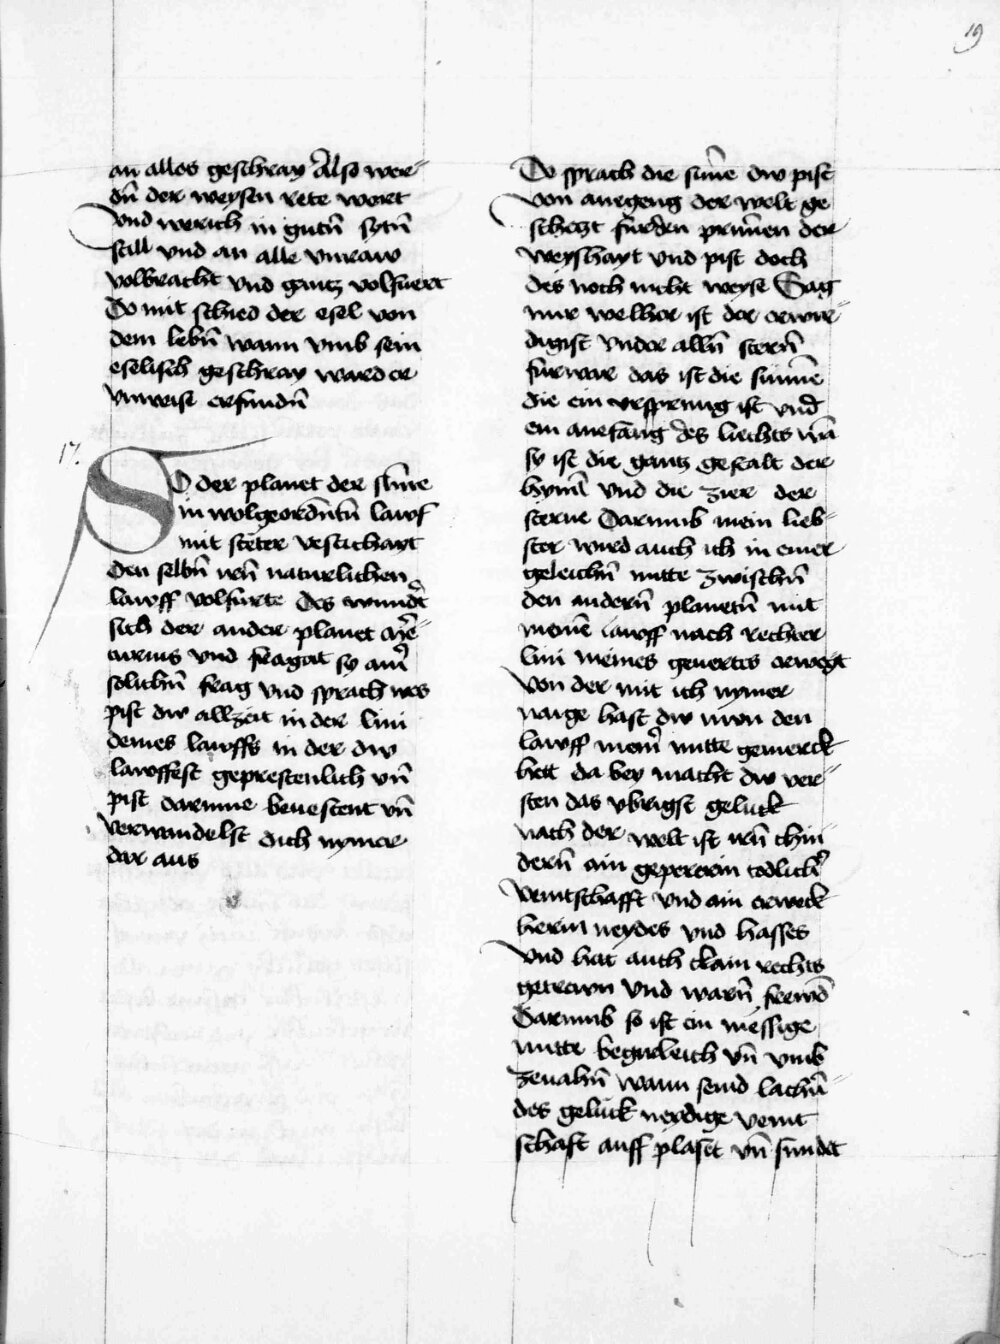 19
an alles geschray Also wer=
dn̄ der weysen rete wort
vnd werich in gutn̄ sytn̄
still vnd an alle vnraw
volbracht vnd gantz volfuert
Do mit schied der esel von
dem lebn̄ wann vmb sein
eselisch geschray ward er
vnweise erfundn̄
17.
SO der planet der sūne
in wolgeordn̄tn̄ lawf
mit steter vestichayt
den selbn̄ vn̄ naturlichen
lawff volfurte Des wundt̄
sich der ander planet Mēr=
curius vnd fragat sy ainēr
solichn̄ frag vnd sprach wes
pist dw allzeit in der lini
deines lawffs in der dw
lawffest geprestenlich vn̄
pist darinne beuestent vn̄
verwandelst dich nymer
dar aus
Do sprach die sūne dw pist
von anegeng der welt ge
schetzt fur den prinnen der
weyshayt vnd pist doch
des noch nicht weyse Sag
mir welher ist der erwir=
digist vnder alln̄ stern̄
furwar das ist die sūnne
die ein vrsprung ist vnd
ein anefang des liechts vn̄
sy ist die gantz gestalt der
hyml̄ vnd die zier der
sterne Darumb mein lieb=
ster wird auch ich in einer
geleichn̄ mitte zwischn̄
den andern̄ planetn̄ mit
meine̅ lawff nach rechter
lini meines geuertes erwegt
von der mit ich nymer
naige hast dw nun den
lawff meine̅r mitte gemerck
hett da bey macht dw ver=
sten das vbrigst geluck
nach der welt ist vn̄ chin
dern̄ ain gepererin todlich̄er
veintschafft vnd ain erweck
herin neydes vnd hasses
vnd hat auch chain rechts
getrewn vnd warn̄ frewnd̄
Darumb so ist ein messige
mitte begreleich vn̄ vmb
zeuahn̄ wann seind lachn̄=
des geluck neydige veint
schaft auff plaset vn̄ sundet